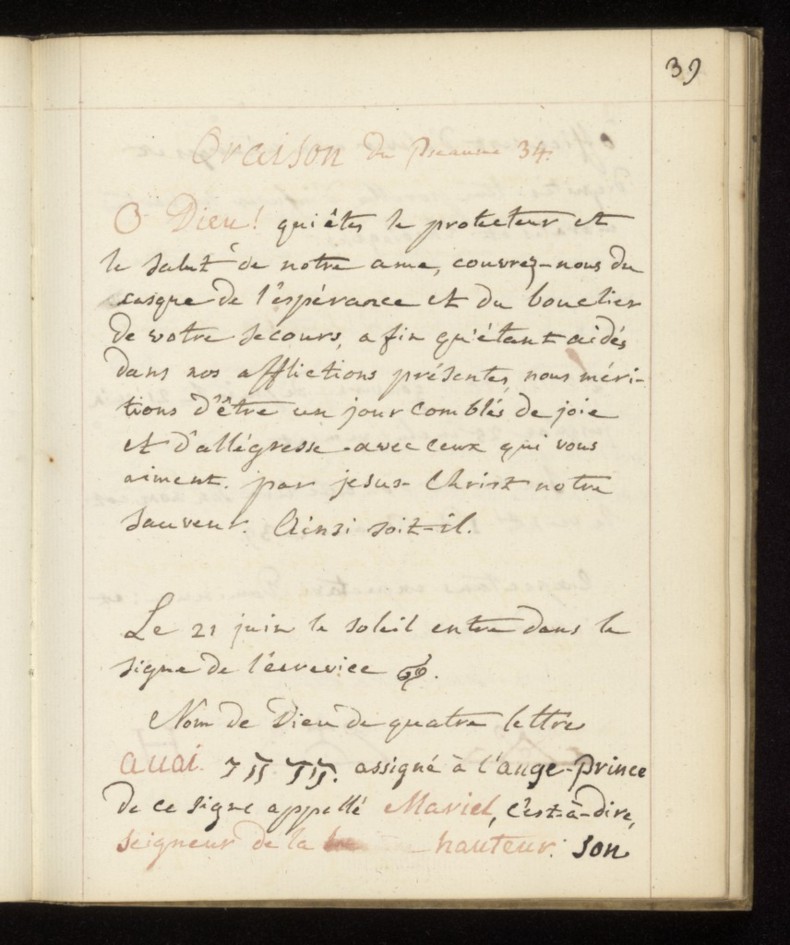 39
Oraison du Pseaume 34.
O Dieu! qui êtes le protecteur et
le salut de notre ame, couvrez-nous du
casque de l'espérance et du bouclier
de votre secours, a fin qu'étant aidés
dans nos afflictions présentes, nous méri-
tions d'être un jour comblés de joie
et d'allégresse avec ceux qui vous
aiment. par jesus-Christ notre
sauveur. Ainsi soit-il.
Le 21 juin le soleil entre dans le
signe de l'écrevice ♋.
Nom de Dieu de quatre lettre
assigné à l'ange-prince
de ce signe appellé Mariel, c'est-à-dire,
seigneur de la hauteur: son